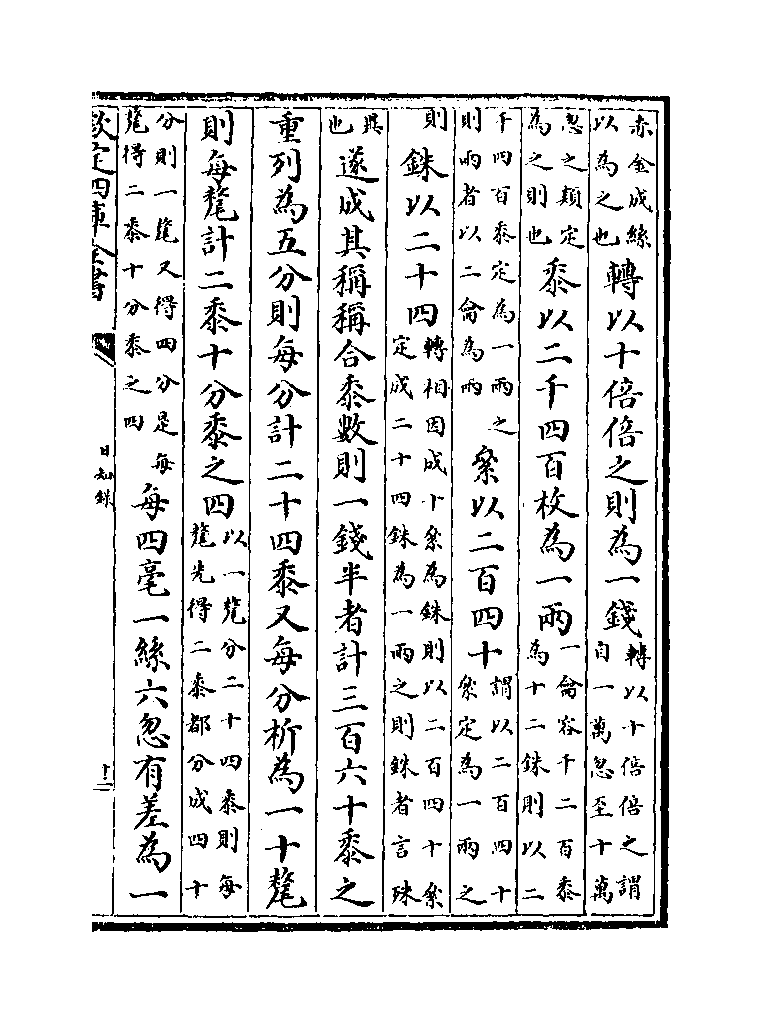 赤金成絲以為之也轉以十倍倍之則為一錢轉以十倍倍之謂自一萬忽至十萬
忽之類定為之則也黍以二千四百枚為一兩一龠容千二百黍為十二銖則以二
千四百黍定為一兩之則兩者以二龠為兩絫以二百四十謂以二百四十絫定為一兩之
則銖以二十四轉相因成十絫為銖則以二百四十絫定成二十四銖為一兩之則銖者言殊
異也遂成其稱稱合黍數則一錢半者計三百六十黍之
重列為五分則每分計二十四黍又每分析為一十氂
則每氂計二黍十分黍之四以一氂分二十四黍則每氂先得二黍都分成四十
分則一氂又得四分是每氂得二黍十分黍之四每四毫一絲六忽有差為一
欽定四庫全書
日知錄
十二